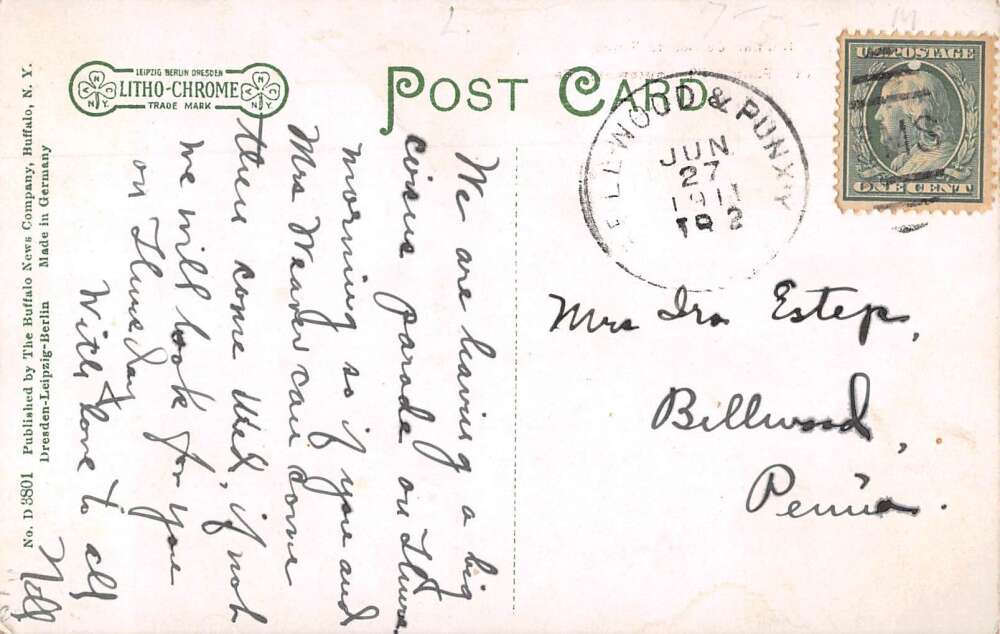 LEIPZIG BERLIN DRESDEN
LITHO-CHROME
TRADE MARK
N N
N.Y. N.Y.
POST CARD
BELLWOOD & PUNXY
JUN
27
1911
TR 2
U.S. POSTAGE
ONE CENT
RMS
Mrs Ira Estep,
Bellwood,
Penna.
We are having a big
circus parade on Thurs.
morning so if you and
Mrs Weaver can come
then come Wed, if not
we will look for you
on Thursday
With love to all
Nell
No. D 3801 Published by The Buffalo News Company, Buffalo, N. Y.
Dresden-Leipzig-Berlin Made in Germany